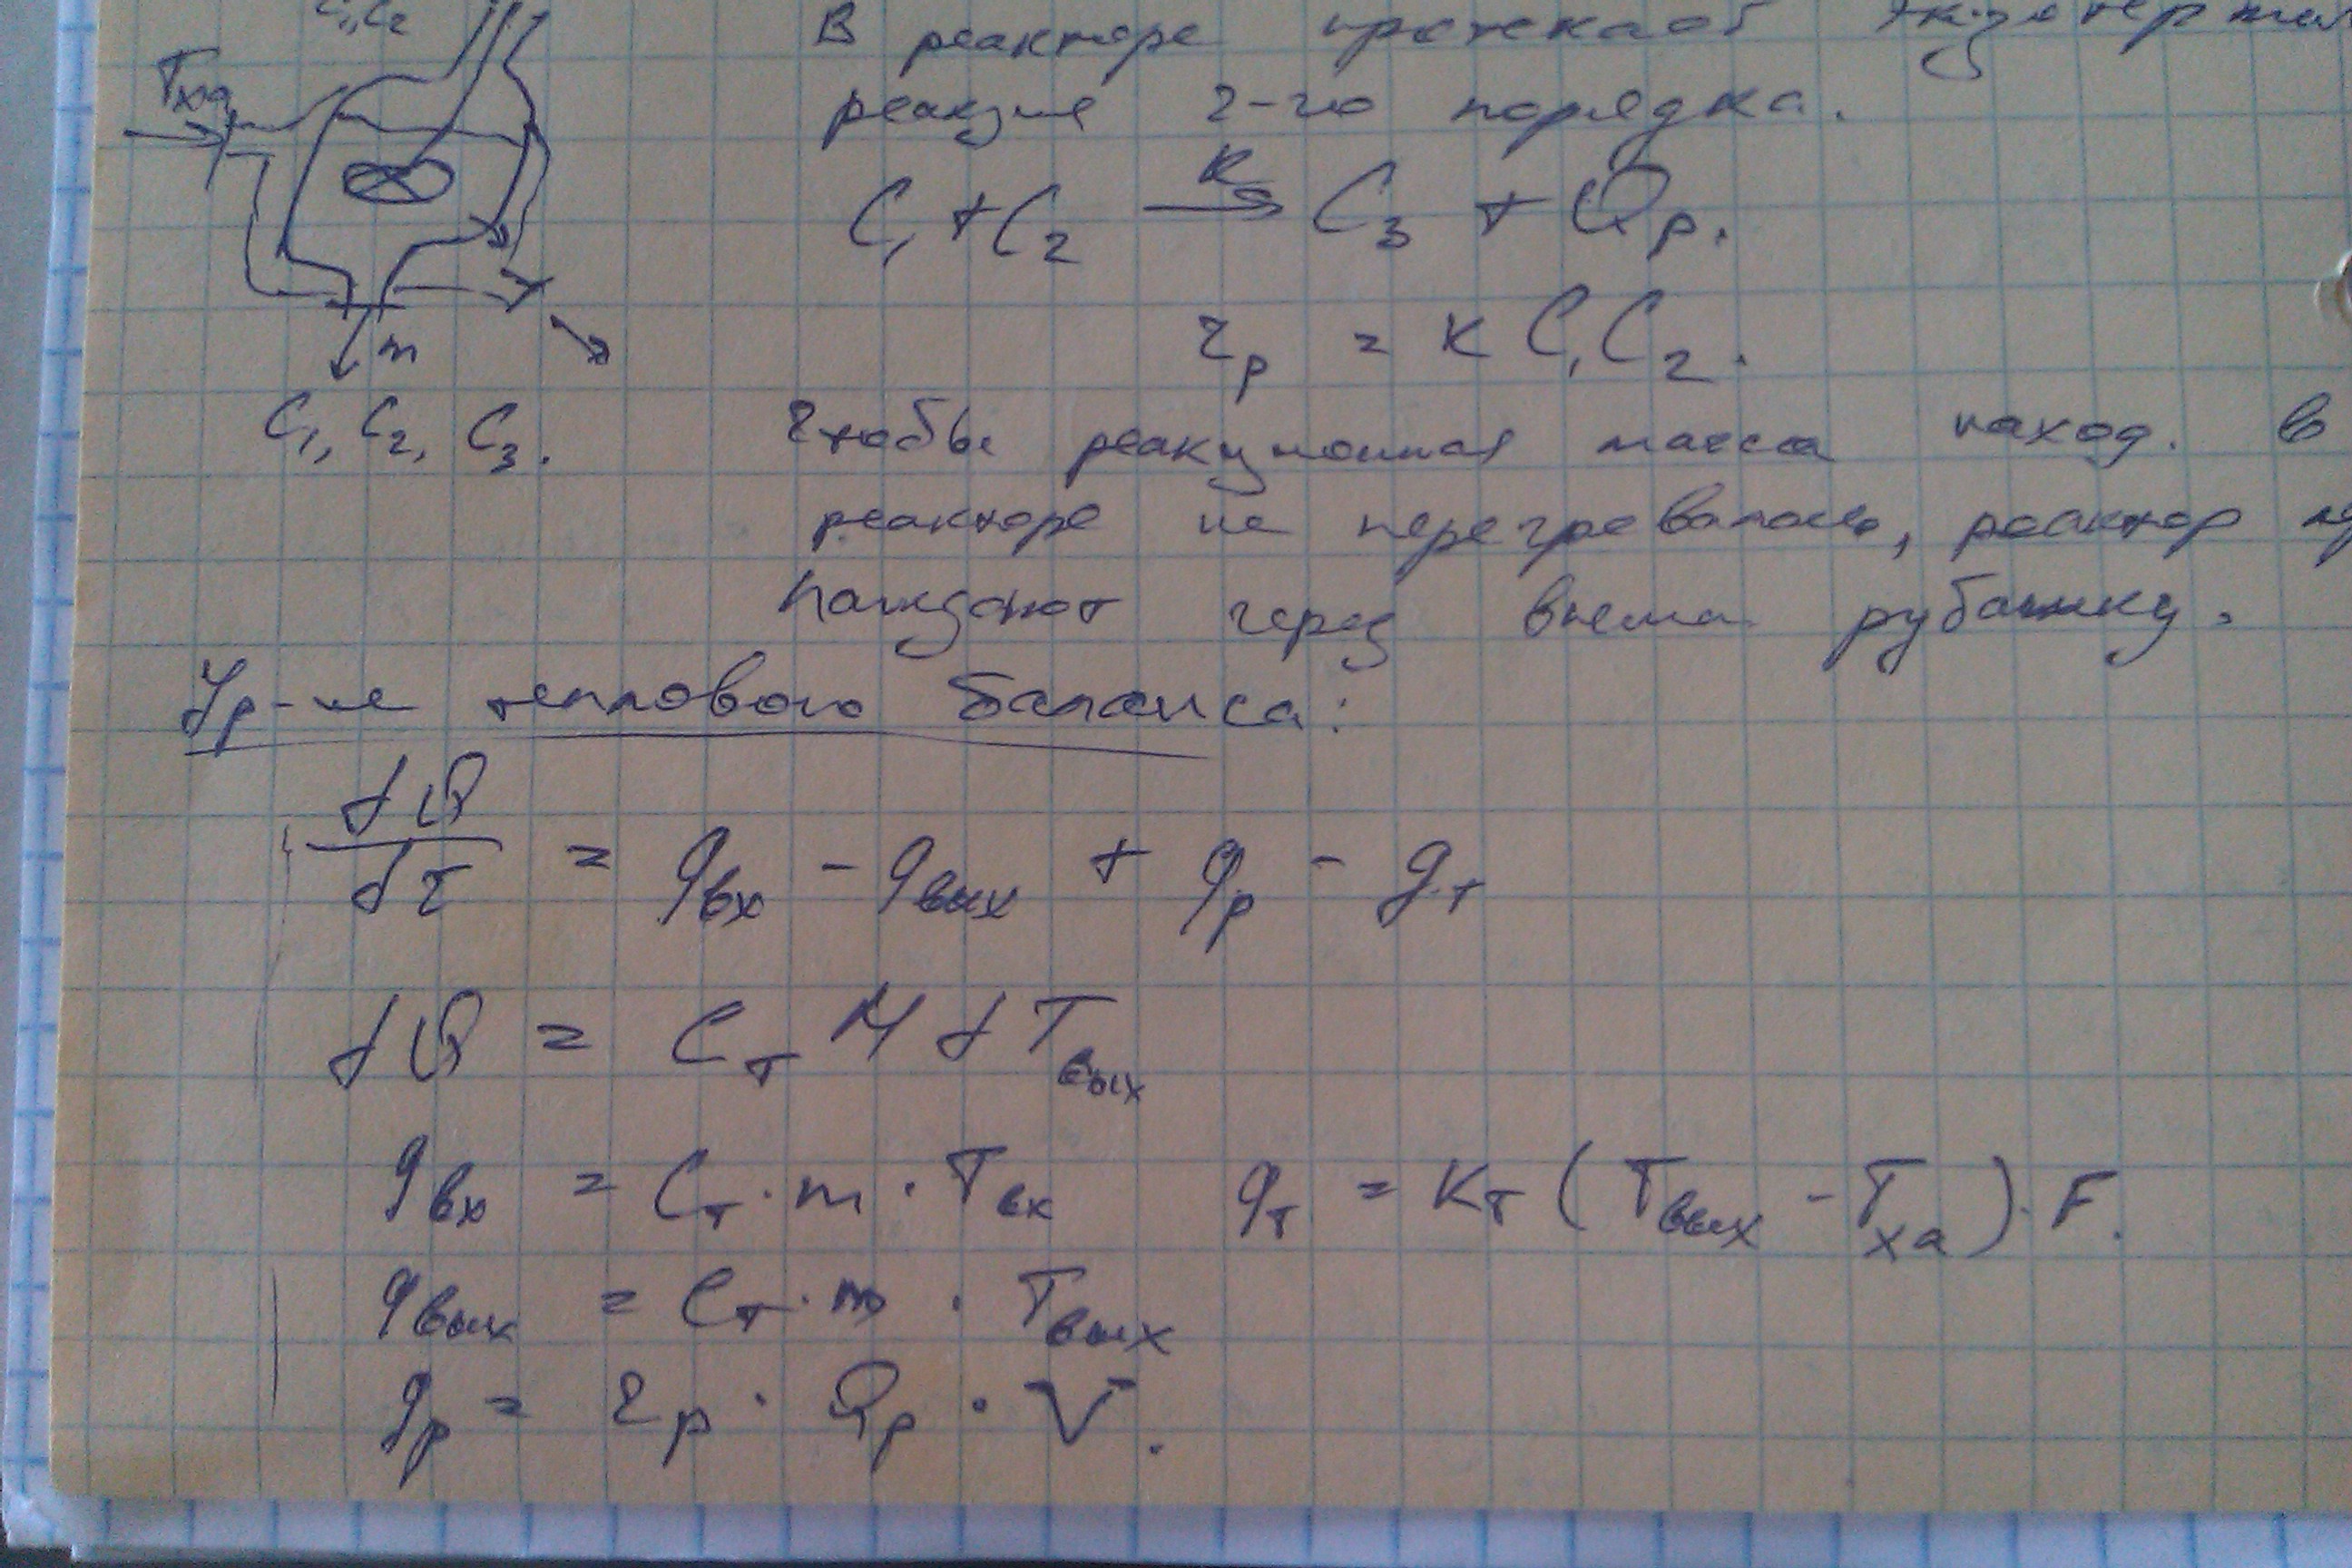 C₁, C₂
Tха
m
C₁, C₂, C₃.
В реакторе протекает экзотерми
реакция 2-го порядка.
C₁ + C₂ →ᴷ C₃ + Qр.
rр = K C₁C₂.
Чтобы реакционная масса наход. в
реакторе не перегревалась, реактор
лаждают через внешн. рубашку.
Ур-ие теплового баланса:
dQ/dτ = qвх - qвых + qр - qт
dQ = Cт M dTвых
qвх = Cт · m · Tвх qт = Kт (Tвых - Tха) · F.
qвых = Cт · m · Tвых
qр = rр · Qр · V.